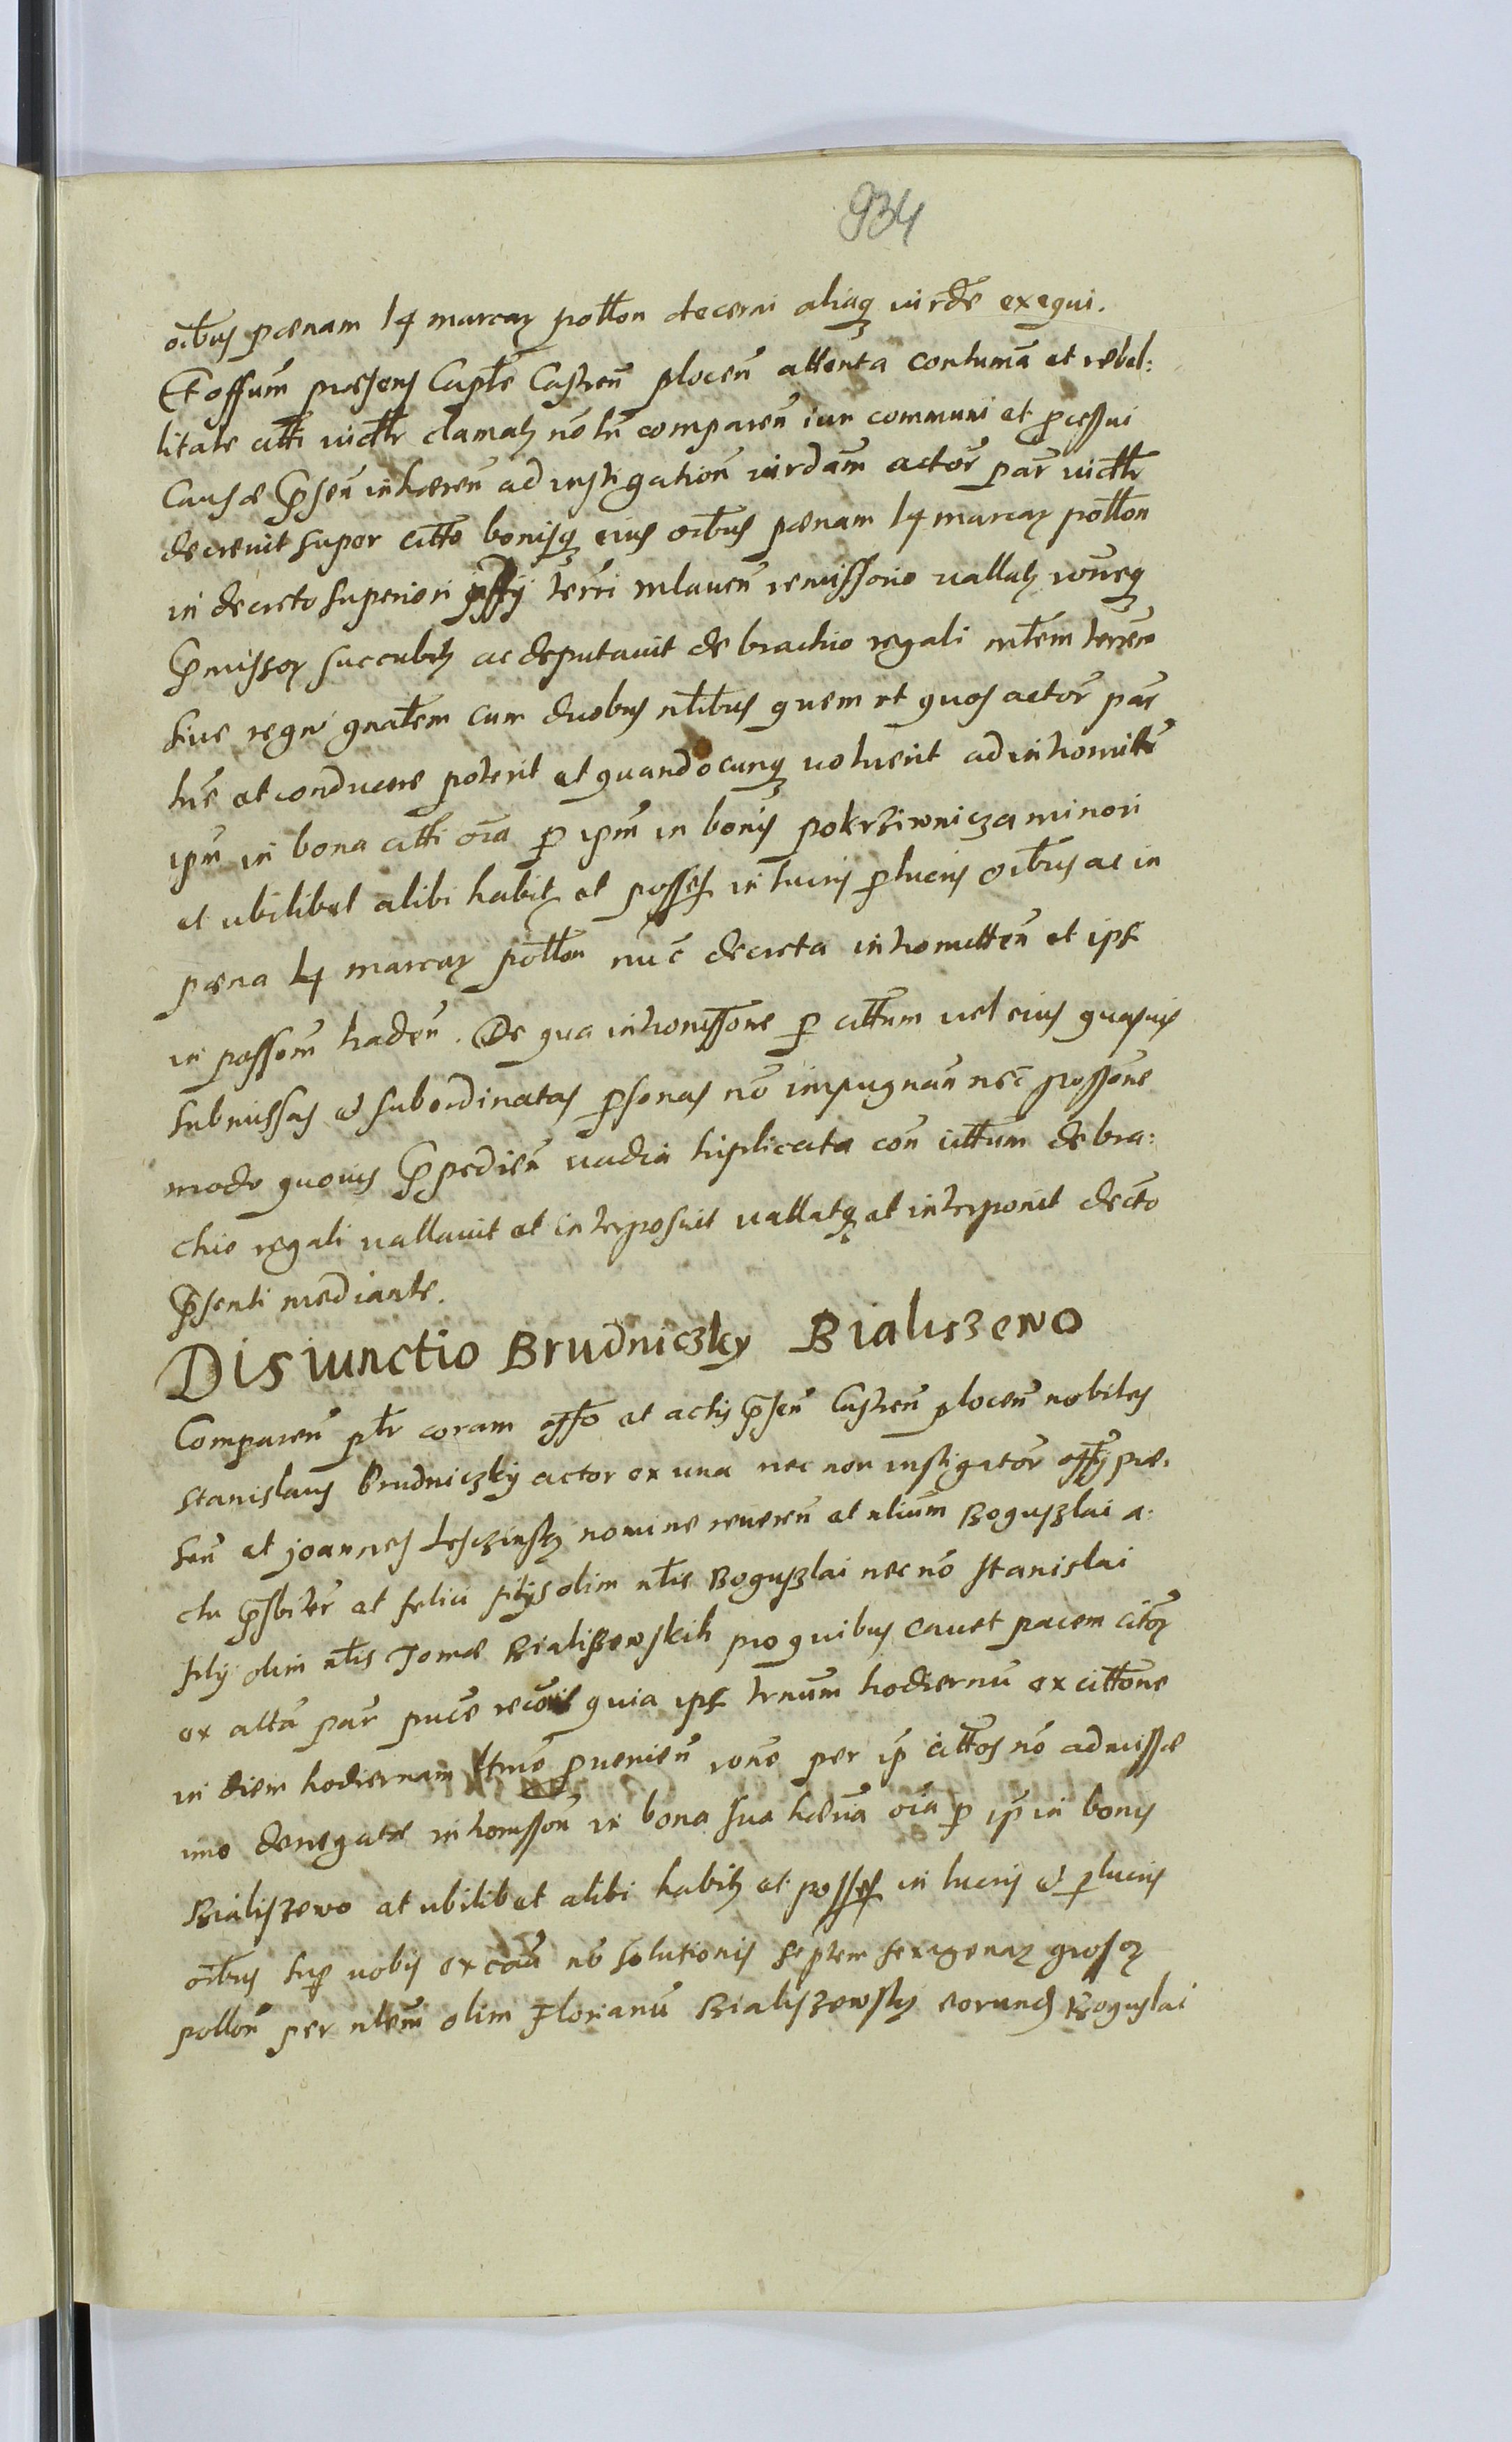 934
oîbus pœnam 14 marcaȝ pollon decerni aliaqȝ iurdê exequi.
Et offûm præsens Captle Castren̄ plocen̄ attenta contumā et rebel:
litate citti uicttr clamatȝ nō tn̄ comparen̄ iuri communi et pcessui
Causæ pn̄sen̄ inhæren̄ ad instigation̄ iurdām actor̄ par̄ uicttr
decreuit super citto bonisqȝ eius oîbus pœnam 14 marcaȝ pollon
in decreto superiori offij terri mlauen̄ remissorio vallatȝ rōneqȝ
pmissoȝ succubitȝ ac deputauit de brachio regali mlêm terrêm
siue regni gnalêm cum duobus nlibus quem et quos actor̄ par̄
hrē et conducere poterit et quandocunqȝ uoluerit ad intromittn̄
ipm̄ in bona citti oīa p ipm̄ in bonis pokrziwnicza minori
et ubilibet alibi habitȝ et posses in lucris plucris oîbus ac in
pœna 14 marcaȝ pollon nūc decreta intromitten̄ et ips
in possom̄ traden̄. De qua intromissone p cittum uel eius quasuis
submissas et subordinatas psonas nō impugnan̄ nec possone
modo quouis ppedien̄ uadia triplicata con̄ cittum de bra:
chio regali vallauit et interposuit vallatqȝ et interponit decto
pn̄senti mediante.
Disiunctio Brudniczky Bialiszewo
Comparen̄ ptr coram offo et actis pn̄sen̄ Castren̄ plocen̄ nobiles
Stanislaus Brudniczky actor ex una nec non instigator̄ offij præ:
sen̄ et joannes Lesczinskȝ nomine reueren̄ et nlium Boguszlai a:
ctu psbiter̄ et felici filijs olim nlis Boguszlai nec nō Stanislai
filij olim nlis Tomæ Bialiszewskih pro quibus cauet pacem citoȝ
ex altā par̄ puce quia ips trnum hodiernū ex cittone
in diem hodiernam pueniē rōne per ip̄ cittos nō admissæ
imo denegatæ intromisson̄ in bona sua hæria oīa p ip̄ in bonis
Bialiszewo et ubilibet alibi habitȝ et posses in lucris et plucris
oîbus sup nobis ex cāū nō solutionis septem sexagenaȝ grosoȝ
pollon̄ per nlem olim Florianū Bialiszewskȝ eorundȝ Boguslai